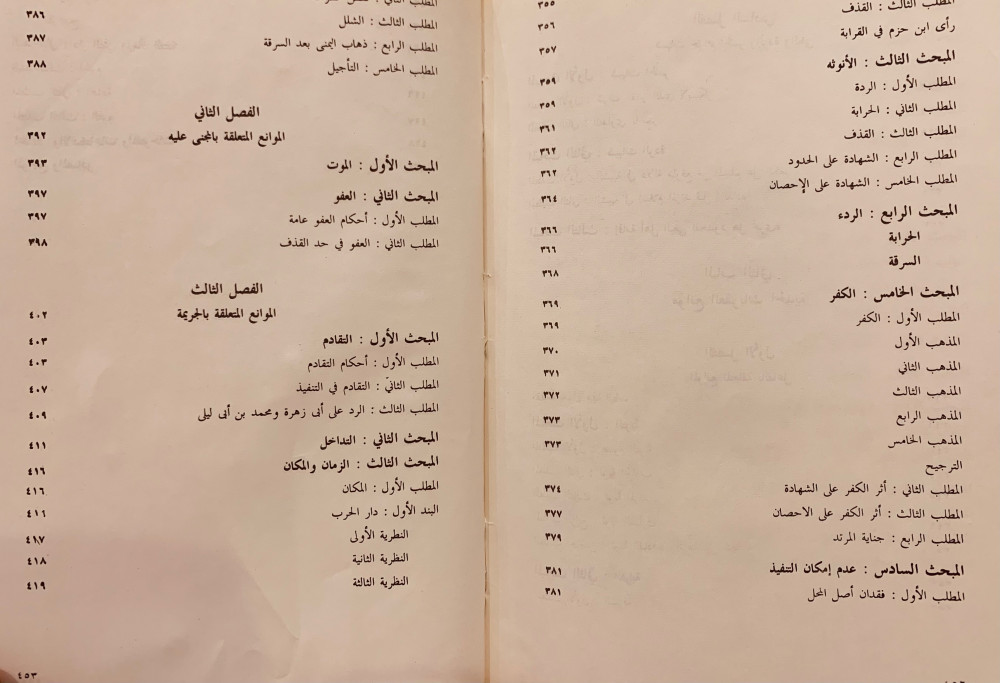 المطلب الثالث : القذف ٣٥٥
رأى ابن حزم في القرابة ٣٥٦
المبحث الثالث : الأنوثه ٣٥٧
المطلب الأول : الردة ٣٥٩
المطلب الثاني : الحرابة ٣٥٩
المطلب الثالث : القذف ٣٦١
المطلب الرابع : الشهادة على الحدود ٣٦٢
المطلب الخامس : الشهادة على الإحصان ٣٦٢
المبحث الرابع : الردء ٣٦٤
الحرابة ٣٦٦
السرقة ٣٦٦
المبحث الخامس : الكفر ٣٦٨
المطلب الأول : الكفر ٣٦٩
المذهب الأول ٣٦٩
المذهب الثاني ٣٧٠
المذهب الثالث ٣٧١
المذهب الرابع ٣٧٢
المذهب الخامس ٣٧٣
الترجيح ٣٧٣
المطلب الثاني : أثر الكفر على الشهادة ٣٧٤
المطلب الثالث : أثر الكفر على الاحصان ٣٧٧
المطلب الرابع : جناية المرتد ٣٧٩
المبحث السادس : عدم إمكان التنفيذ ٣٨١
المطلب الأول : فقدان أصل المحل ٣٨١
المطلب الثالث : الشلل ٣٨٦
المطلب الرابع : ذهاب اليمنى بعد السرقة ٣٨٧
المطلب الخامس : التأجيل ٣٨٨
الفصل الثاني
الموانع المتعلقة بالمجنى عليه ٣٩٢
المبحث الأول : الموت ٣٩٣
المبحث الثاني : العفو ٣٩٧
المطلب الأول : أحكام العفو عامة ٣٩٧
المطلب الثاني : العفو في حد القذف ٣٩٨
الفصل الثالث
الموانع المتعلقة بالجريمة ٤٠٢
المبحث الأول : التقادم ٤٠٣
المطلب الأول : أحكام التقادم ٤٠٣
المطلب الثاني : التقادم في التنفيذ ٤٠٧
المطلب الثالث : الرد على أبى زهرة ومحمد بن أبى ليلى ٤٠٩
المبحث الثاني : التداخل ٤١١
المبحث الثالث : الزمان والمكان ٤١٦
المطلب الأول : المكان ٤١٦
البند الأول : دار الحرب ٤١٦
النظرية الأولى ٤١٧
النظرية الثانية ٤١٨
النظرية الثالثة ٤١٩
٤٥٣